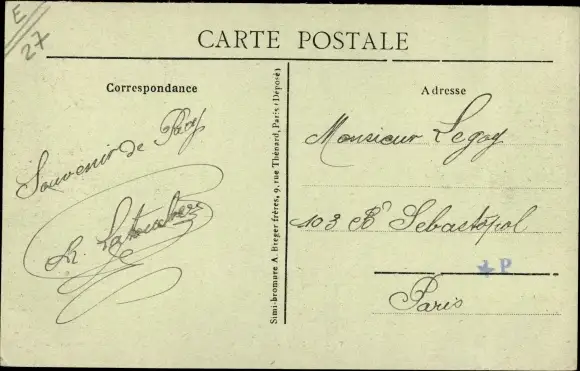 E
27
CARTE POSTALE
Correspondance
Souvenir de
Simi-bromure A. Breger frères, 9, rue Thénard, Paris (Déposé)
Adresse
Monsieur Legoy
103 Bd Sebastopol
★ P
Paris